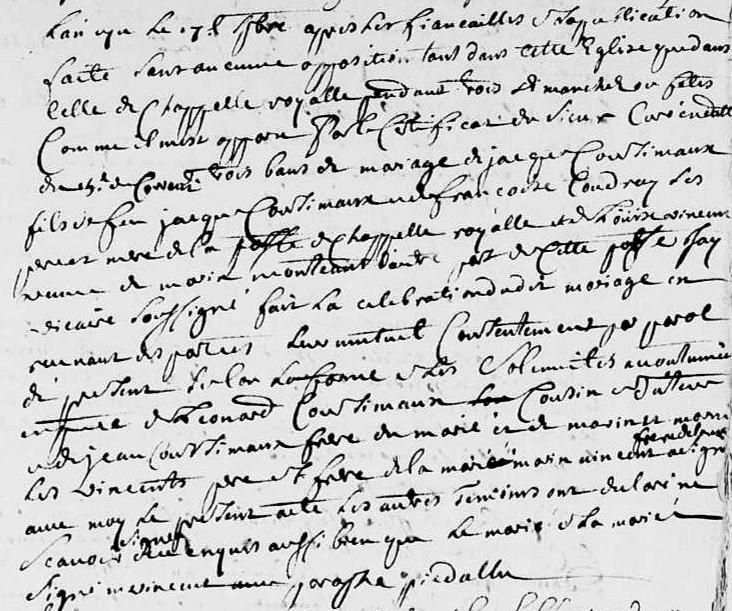 L'an que le 17e 9bre appres les fiancailles et la publication
faitte sans aucunne opposition tant dans cette Eglise que dans
celle de Chappelle royalle pendant trois dimanches ou festes
Comme il m'est apparu par le Certificat du sieur
trois bans de mariage de jacque Courtimaux
fils de feu jacque Courtimaux et de francoise Coudray les
pere et mere de la psse de Chappelle royalle et de Louise vincent
veuve de marin part de cette psse Je
vicaire soussigné fait la celebration dudit mariage en
prenant des parties leur mutuel Consentement par parol
de present selon la forme et les Solemnites accoutumées
en presence de Leonard Courtimaux Cousin et
et de jean Courtimaux frere du marié et de marin et
Les vincents pere et frere de la mariée marin vincent a signé
frere
avec moy Le present acte Les autres temoins ont declaré ne
Scavoir signer de ce enquis aussi bien que Le marié et La mariée
Signé m vincent avec paraphe piedallu